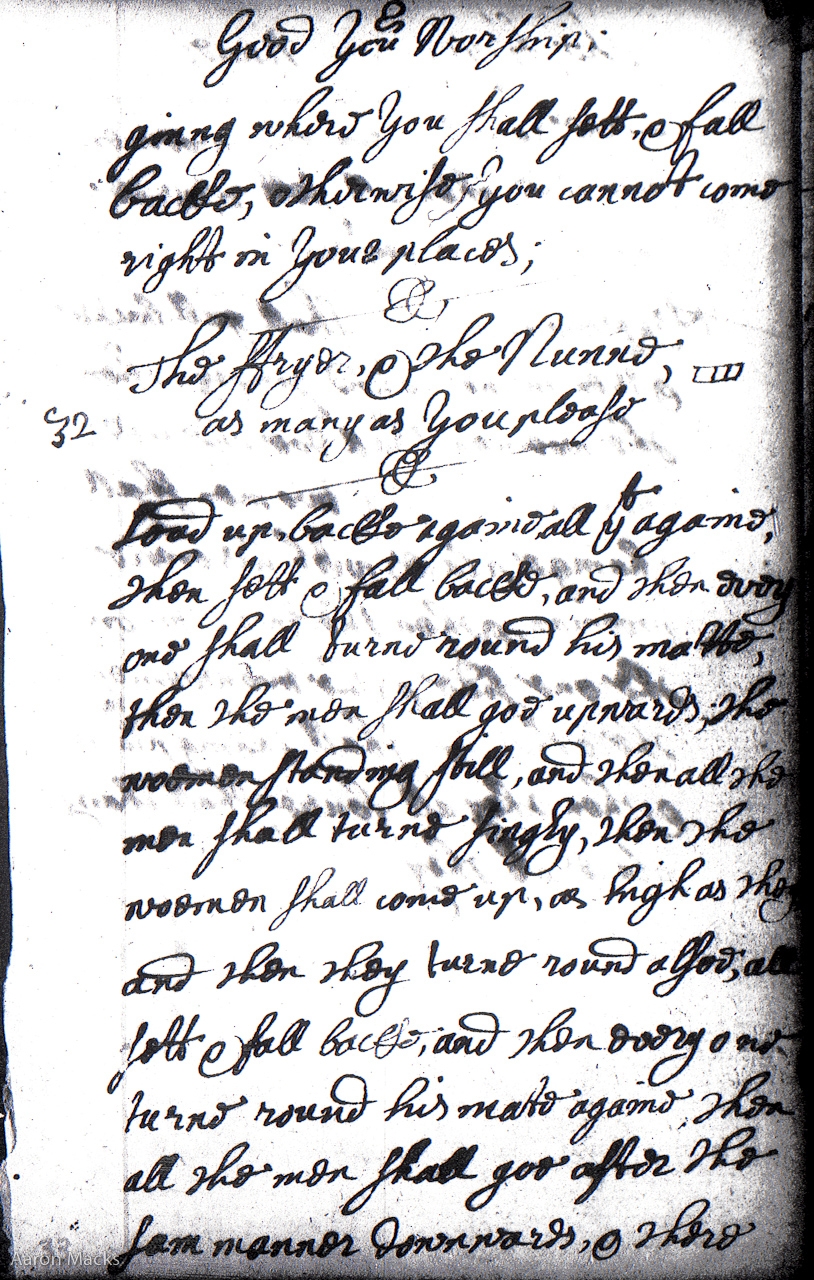 Good your Worship;
ginng where you shall sett, & fall
backe, otherwise you cannot come
right in your places;
The ffryer, & the Nunne,
32
as many as you please
Lead up, backe againe, all yt againe,
then sett & fall backe, and then every
one shall turne round his mate,
then the men shall goe upwards, the
woemen standing still, and then all the
men shall turne singly, then the
woemen shall come up, as high as they
and then they turne round alsoe, all
sett & fall backe, and then every one
turne round his mate againe, then
all the men shall goe after the
sam manner downwards, & there
Aaron Macks